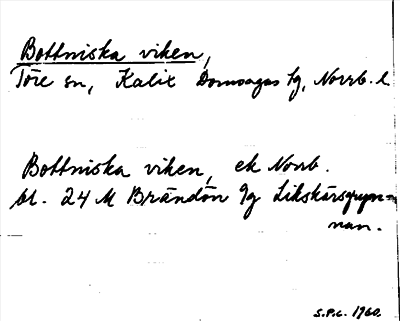 Bottniska viken,
Töre sn, Kalix Domsagas tg, Norrb. l
Bottniska viken, ek Norrb.
bl. 24 M Brändön 9g Likskärsgryn-
nan.
S.P.C. 1960